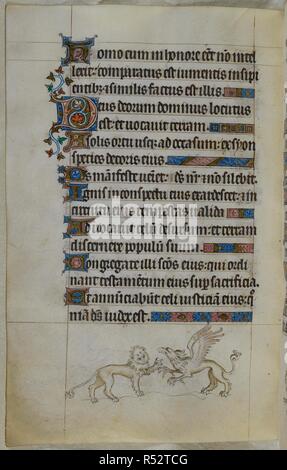 Homo cum in honore eet nō intel
lexit: comparatus est iumentis insipi
entib; & similis factus est illis.
Deus deorum dominus locutus
est: et uocauit terram.
A solis ortu usqȝ ad occasum: ex syon
species decoris eius.
Ds manifeste ueniet: ds nr̄ & nō silebit.
Ignis in conspectu eius exardescet: & in
circuitu eius tempestas ualida.
Aduocauit celum desursum: et terram
discernere populū suum.
Congregate illi scōs eius: qui ordi
nant testamentum eius sup sacrificia.
Et annūciabūt celi iusticiam eius: qm̄
niā ds iudex est.
alamy
R52TCG
www.alamy.com